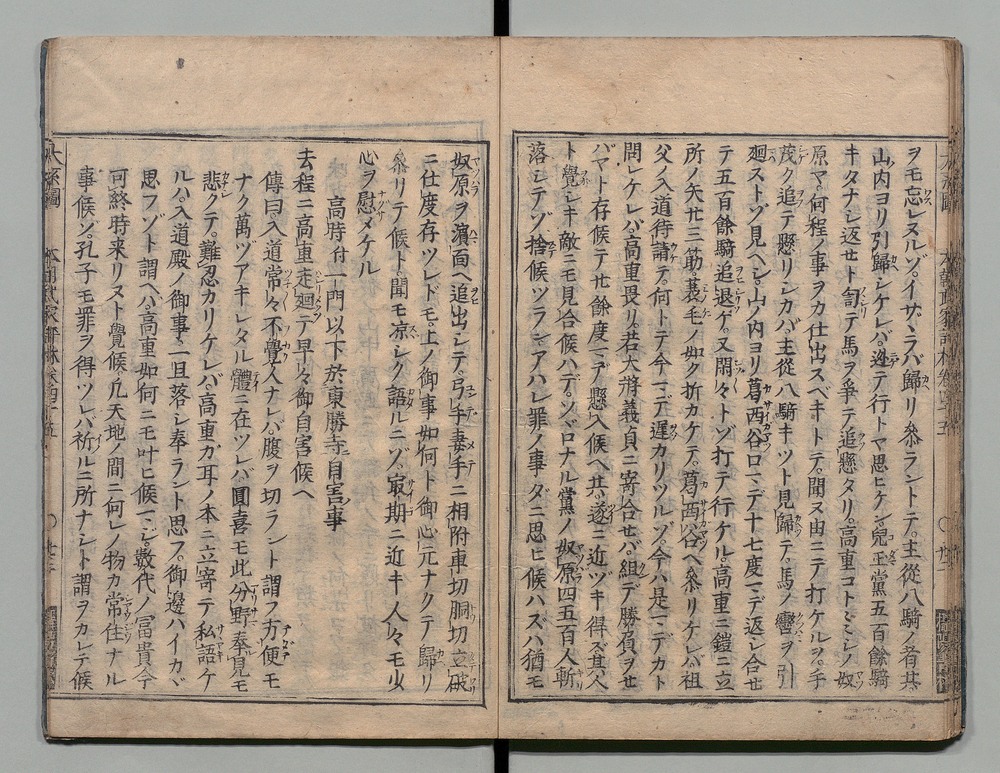 ヲモ忘レヌルゾ。イザ、ラバ歸リ參ラントテ。主從八騎ノ者共
山内ヨリ引歸シケレバ。迯テ行トマ思ヒケン。兒玉黨五百餘騎
キタナシ返セト訇テ馬ヲ爭テ追懸タリ。高重コト〻シノ奴
原マ。何程ノ事ヲカ仕出スベキトテ。聞ヌ由ニテ打ケルヲ。手
茂ク追テ懸リシカバ。主從八騎キツト見歸テ。馬ノ轡ヲ引
廻ストゾ見ヘシ。山ノ内ヨリ葛西谷口マデ十七度マデ返シ合セ
テ五百餘騎追退ゲ。又閑々トゾ打テ行ケル。高重ニ鎧ニ立
所ノ矢廿三筋。蓑毛ノ如ク折カケテ。葛西谷ヘ參リケレバ祖
父ノ入道待請テ。何トテ今マデ遲カリツルゾ。今ハ是マデカト
問レケレバ。高重畏リ。若大將義貞ニ寄合セバ。組デ勝負ヲセ
バマト存候テ廿餘度マデ懸入候ヘ共。遂ニ近ヅキ得ズ。其人
ト覺シキ敵ニモ見合候ハデ。ソヾロナル黨ノ奴原四五百人斬
落シテゾ捨候ツラン。アハレ罪ノ事ダニ思ヒ候ハズハ猶モ
奴原ヲ濵面ヘ追出シテ。弓手妻手ニ相附車切胴切立破
ニ仕度存ツレドモ。上ノ御事如何ト御心元ナクテ歸リ
參リテ候ト。聞モ凉シク語ルニゾ。㝡期ニ近キ人々モ少
心ヲ慰メケル
高時付一門以下於東勝寺自害事
去程ニ高重走廻テ早々御自害候ヘ
傳曰。入道常々不覺人ナレバ腹ヲ切ラント謂フ方便モ
ナク萬ヅアキレタル體ニ在ツレバ。圓喜モ此分野奉見モ
悲クテ。難忍カリケレバ。高重ガ耳ノ本ニ立寄テ私語ケ
ルハ。入道殿ノ御事一旦落シ奉ラント思フ。御邊ハイカヾ
思フゾト謂ヘバ。高重如何ニモ叶ヒ候マジ。數代ノ冨貴今
可終時来リヌト覺候。凡天地ノ間ニ何レノ物カ常住ナル
事候ゾ。孔子モ罪ヲ得ツレバ祈ルニ所ナシト謂ヲカレテ候